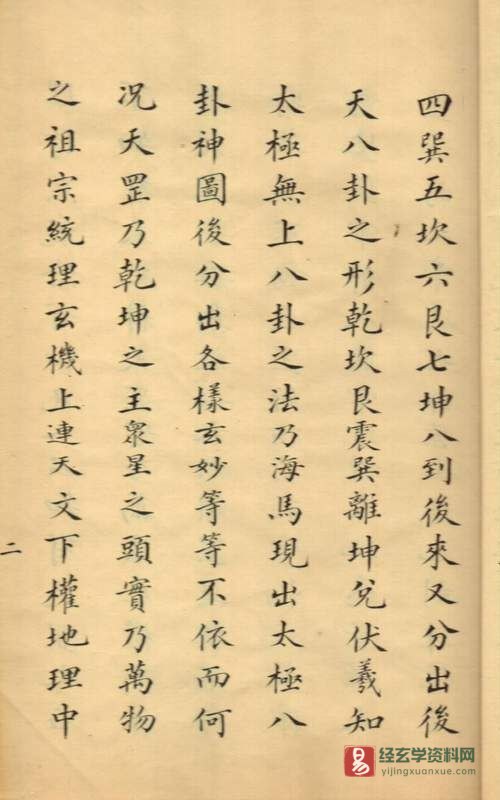 四巽五坎六艮七坤八到後來又分出後
天八卦之形乾坎艮震巽離坤兌伏羲知
太極無上八卦之法乃海馬現出太極八
卦神圖後分出各樣玄妙等等不依而何
况天罡乃乾坤之主衆星之頭實乃萬物
之祖宗統理玄機上連天文下權地理中
二
易 经玄学资料网
yijingxuanxue.com